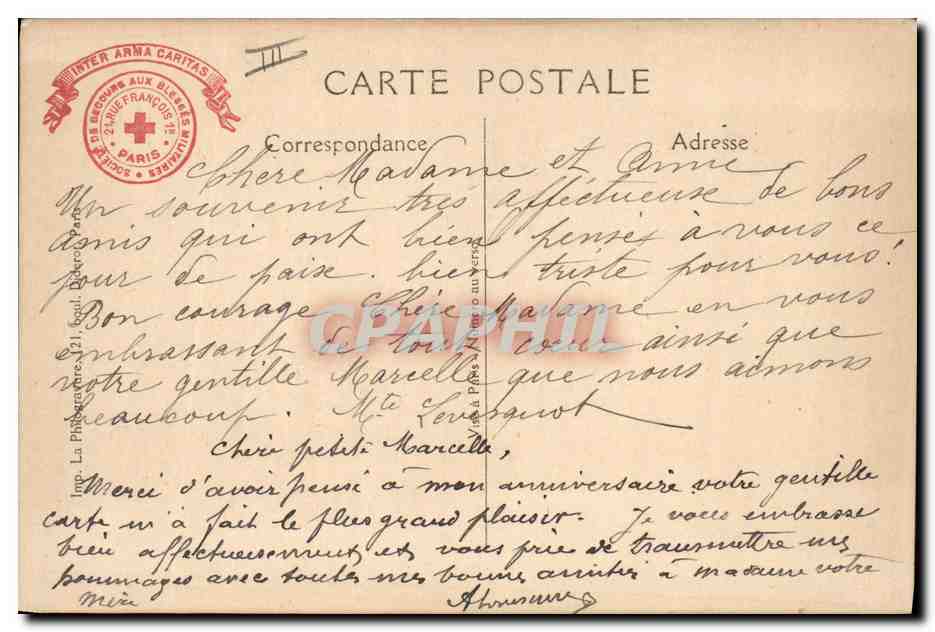 III
INTER ARMA CARITAS
SOCIÉTÉ DE SECOURS AUX BLESSÉS MILITAIRES
21, RUE FRANÇOIS 1ER
PARIS
CARTE POSTALE
Correspondance
Adresse
Chère Madame et Amie
Un souvenir très affectueuse de bons
amis qui ont bien pensé à vous ce
jour de paix. bien triste pour vous!
Bon courage Chère Madame en vous
embrassant de tout cœur ainsi que
votre gentille Marcelle que nous aimons
beaucoup. Mte
Chère petite Marcelle,
Merci d'avoir pensé à mon anniversaire votre gentille
carte m'a fait le plus grand plaisir. Je vous embrasse
bien affectueusement et vous prie de transmettre mes
hommages avec toutes mes bonnes amitiés à madame votre
mère
Imp. La Photogravure, 121, boul. Diderot, Paris
Visé à Paris Numéro au verso
CPAPHIL